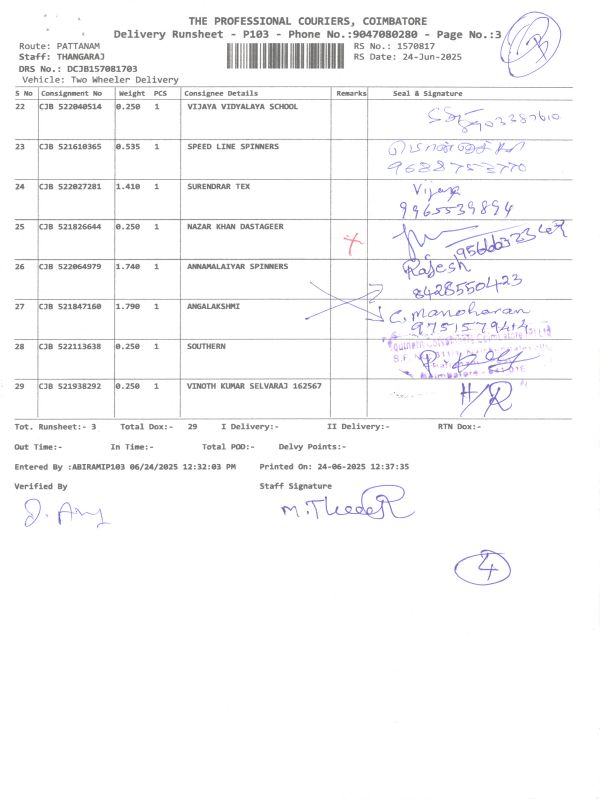 THE PROFESSIONAL COURIERS, COIMBATORE
Delivery Runsheet - P103 - Phone No.:9047080280 - Page No.:3
Route: PATTANAM
RS No.: 1570817
Staff: THANGARAJ
RS Date: 24-Jun-2025
DRS No.: DCJB157081703
Vehicle: Two Wheeler Delivery
S No Consignment No Weight PCS Consignee Details Remarks Seal & Signature
22 CJB 522040514 0.250 1 VIJAYA VIDYALAYA SCHOOL
23 CJB 521610365 0.535 1 SPEED LINE SPINNERS
9688753770
24 CJB 522027281 1.410 1 SURENDRAR TEX Vijaya
9965539894
25 CJB 521826644 0.250 1 NAZAR KHAN DASTAGEER
26 CJB 522064979 1.740 1 ANNAMALAIYAR SPINNERS Rajesh
8428550423
27 CJB 521847160 1.790 1 ANGALAKSHMI C. Manoharan
28 CJB 522113638 0.250 1 SOUTHERN
29 CJB 521938292 0.250 1 VINOTH KUMAR SELVARAJ 162567 H/R
Tot. Runsheet:- 3 Total Dox:- 29 I Delivery:- II Delivery:- RTN Dox:-
Out Time:- In Time:- Total POD:- Delvy Points:-
Entered By :ABIRAMIP103 06/24/2025 12:32:03 PM Printed On: 24-06-2025 12:37:35
Verified By Staff Signature
4